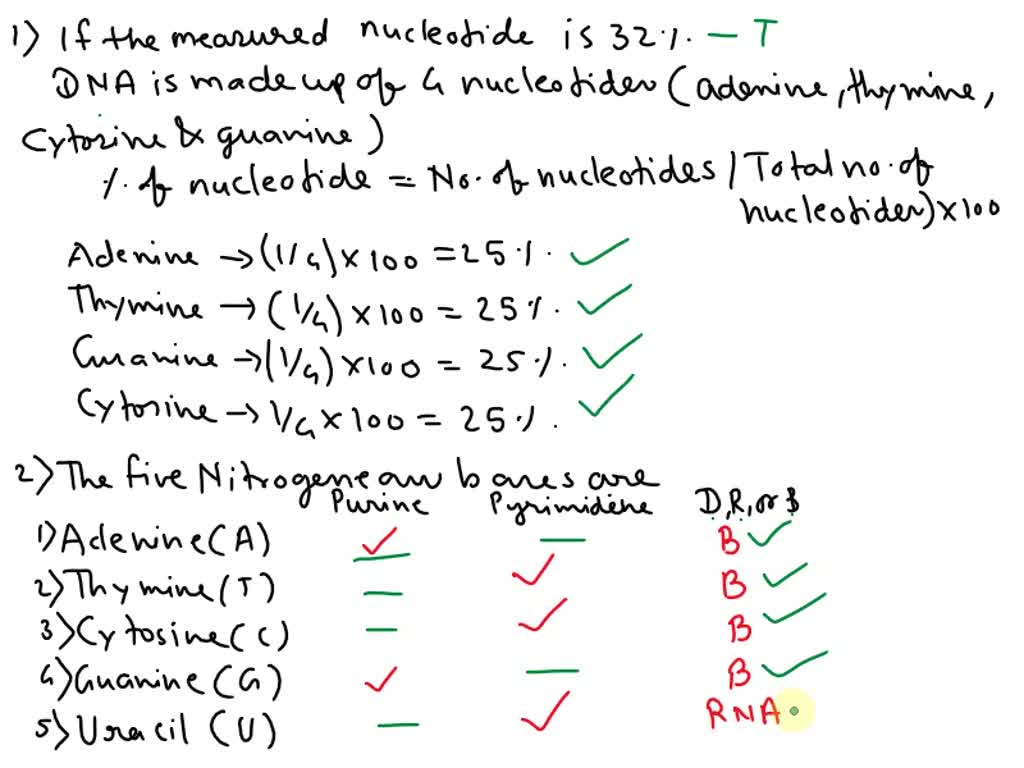 1) If the measured nucleotide is 32%. — T
DNA is made up of 4 nucleotides (adenine, thymine,
cytosine & guanine)
% of nucleotide = No. of nucleotides / Total no. of
nucleotides) x 100
Adenine → (1/4) x 100 = 25%. ✓
Thymine → (1/4) x 100 = 25%. ✓
Guanine → (1/4) x 100 = 25%. ✓
Cytosine → 1/4 x 100 = 25%. ✓
2) The five Nitrogenean bases are
Purine Pyrimidene D, R, or B
1) Adenine (A) ✓ — B ✓
2) Thymine (T) — ✓ B ✓
3) Cytosine (C) — ✓ B ✓
4) Guanine (G) ✓ — B ✓
5) Uracil (U) — ✓ RNA